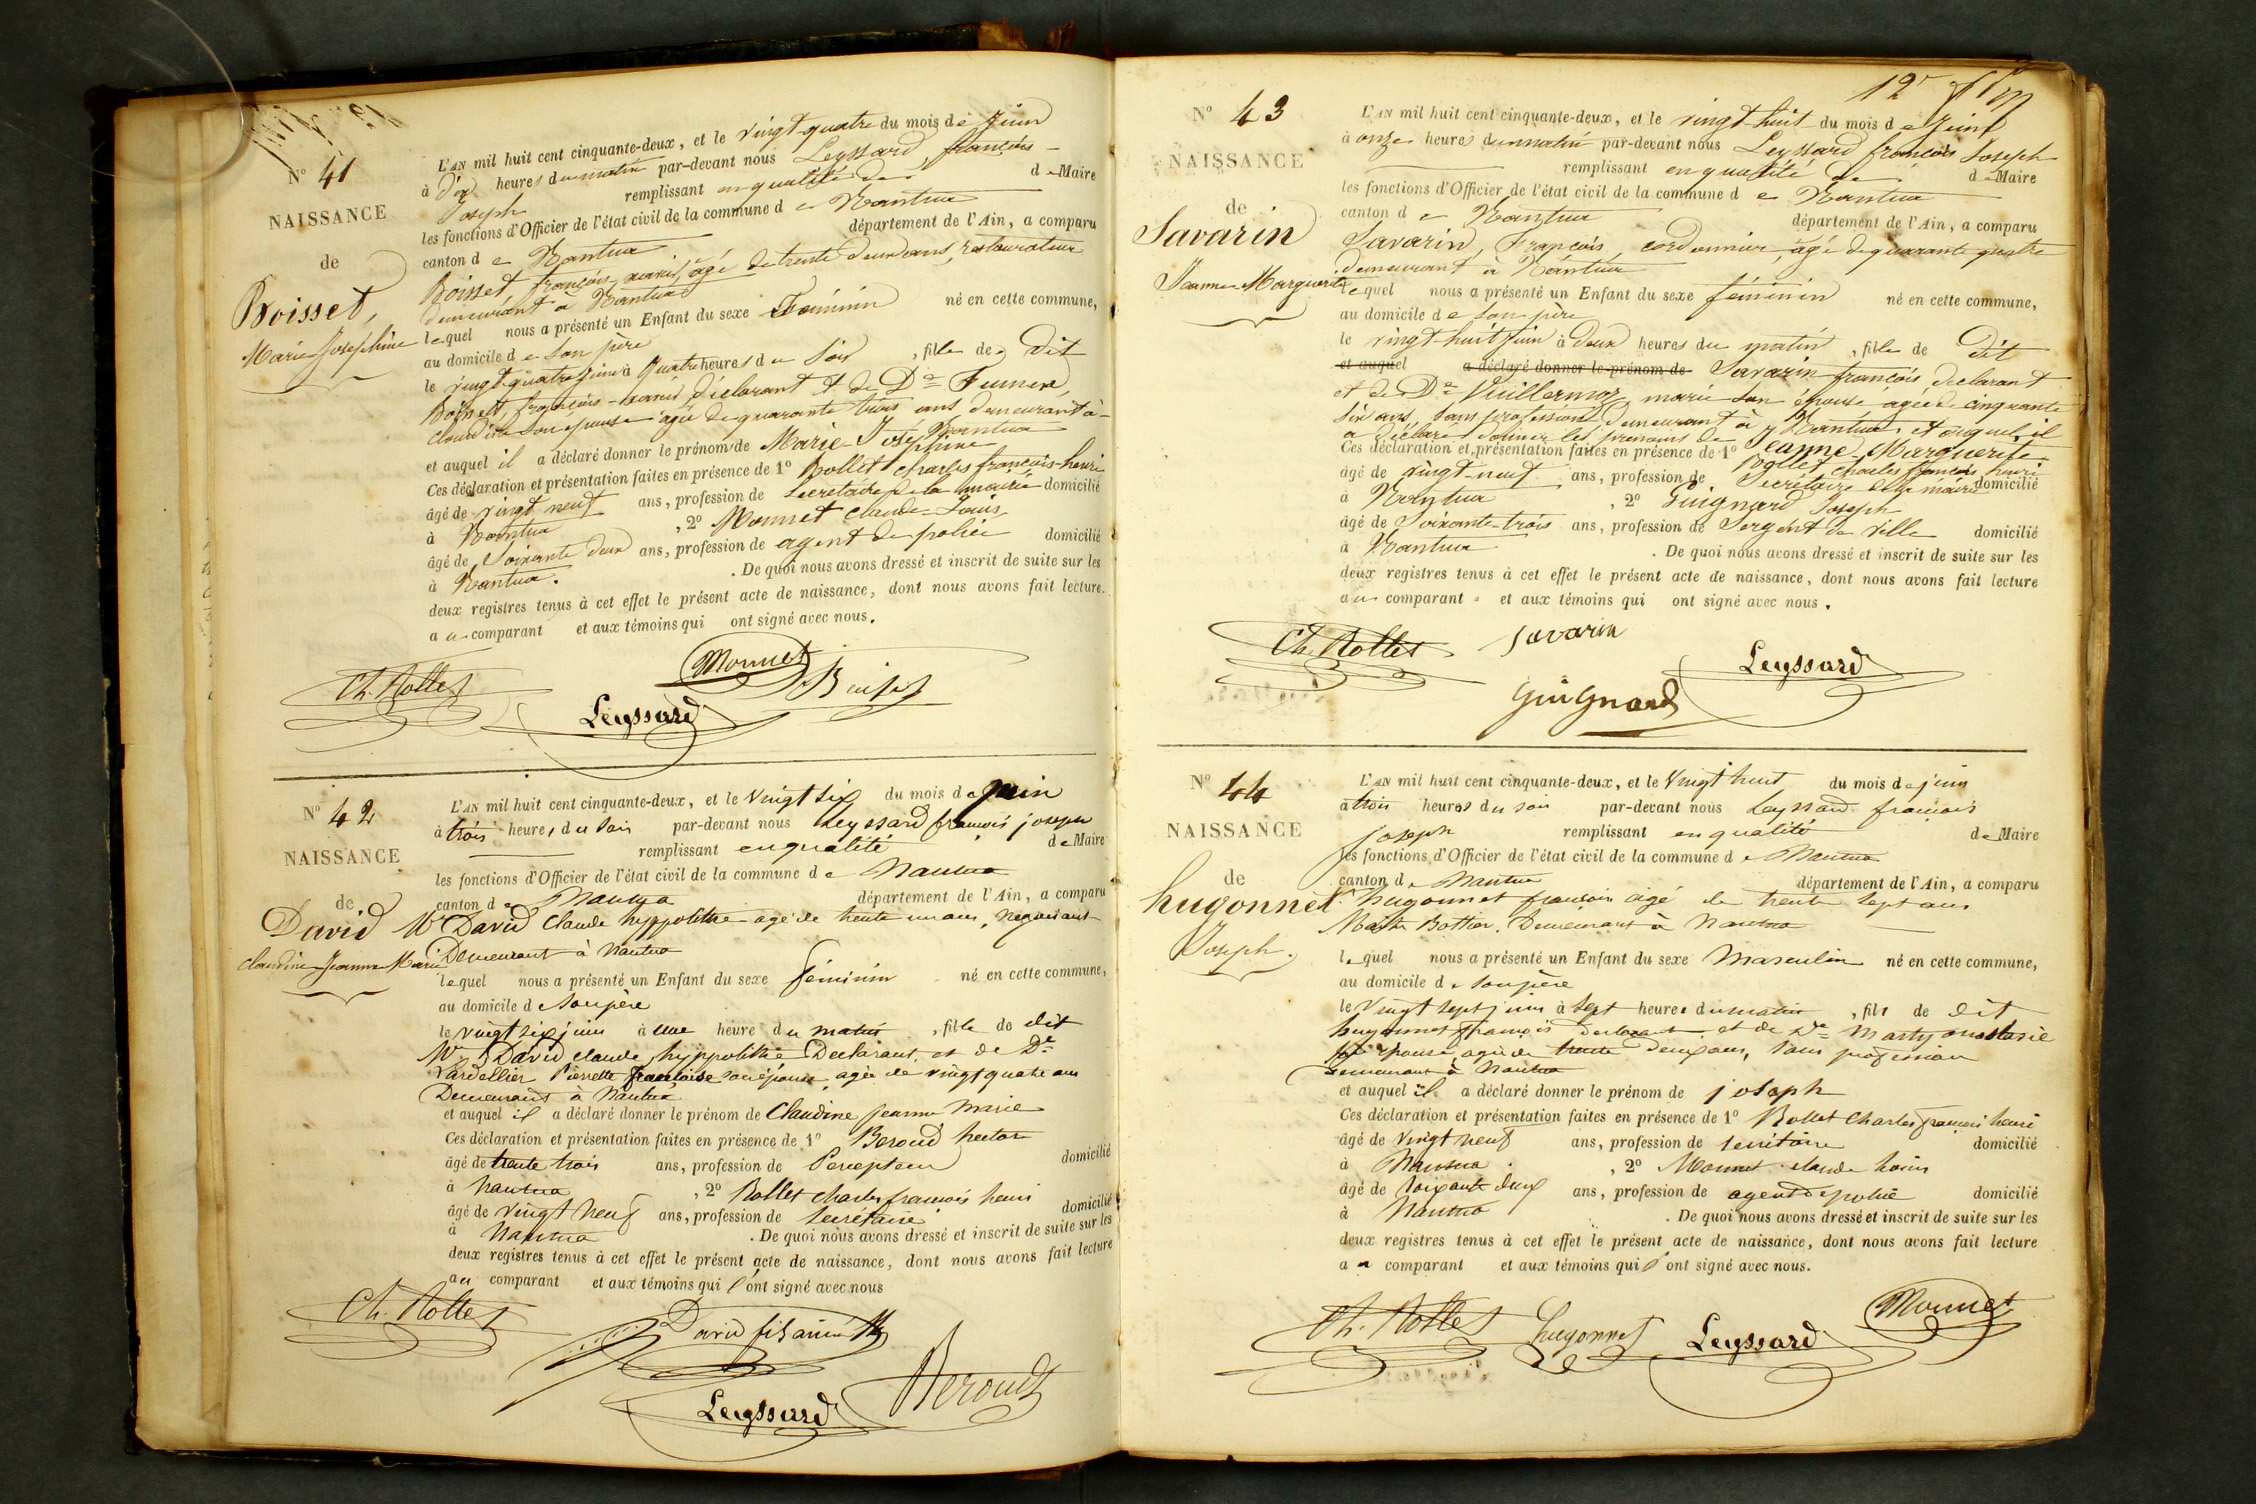 N° 41
NAISSANCE
de
Boisset,
Marie Joséphine
L'AN mil huit cent cinquante-deux, et le vingt-quatre du mois de Juin
à dix heures du matin par-devant nous Leyssard, françois-
Joseph remplissant en qualité de de Maire
les fonctions d'Officier de l'état civil de la commune de Nantua
canton de Nantua département de l'Ain, a comparu
Boisset, françois-xavier, âgé de trente deux ans, restaurateur
demeurant à Nantua
lequel nous a présenté un Enfant du sexe Féminin né en cette commune,
au domicile de son père
le vingt-quatre Juin à quatre heures du soir, fille de dit
Boisset, françois-xavier, déclarant et de De
claudine son épouse âgée de quarante trois ans, demeurant à
Nantua
et auquel il a déclaré donner le prénom de Marie-Joséphine
Ces déclaration et présentation faites en présence de 1° Rollet charles françois-henri
âgé de vingt neuf ans, profession de Secrétaire de la mairie domicilié
à Nantua, 2° Monnet claude-Louis
âgé de Soixante deux ans, profession de agent de police domicilié
à Nantua. De quoi nous avons dressé et inscrit de suite sur les
deux registres tenus à cet effet le présent acte de naissance, dont nous avons fait lecture.
au comparant et aux témoins qui ont signé avec nous.
Ch. Rollet Monnet Boisset
Leyssard
N° 42
NAISSANCE
de
David
Claudine Jeanne Marie
L'AN mil huit cent cinquante-deux, et le vingt six du mois de Juin
à trois heures du soir par-devant nous Leyssard françois joseph
remplissant en qualité de Maire
les fonctions d'Officier de l'état civil de la commune de Nantua
canton de Nantua département de l'Ain, a comparu
Mr David Claude hyppolithe agé de trente un ans, négociant
Demeurant à Nantua
lequel nous a présenté un Enfant du sexe féminin né en cette commune,
au domicile de son père
le vingt six juin à une heure du matin, fille de dit
Mr David claude hyppolithe Déclarant, et de De
Lardellier Pierrette françoise son épouse, agée de vingt quatre ans
Demeurant à Nantua
et auquel il a déclaré donner le prénom de Claudine jeanne Marie
Ces déclaration et présentation faites en présence de 1° Beroud hector
âgé de trente trois ans, profession de Percepteur domicilié
à Nantua, 2° Rollet charles françois henri
âgé de vingt neuf ans, profession de Secrétaire domicilié
à Nantua. De quoi nous avons dressé et inscrit de suite sur les
deux registres tenus à cet effet le présent acte de naissance, dont nous avons fait lecture
au comparant et aux témoins qui l'ont signé avec nous
Ch. Rollet David fils ainé
Leyssard Beroud
12
N° 43
NAISSANCE
de
Savarin
Jeanne-Marguerite
L'AN mil huit cent cinquante-deux, et le vingt-huit du mois de Juin
à onze heures du matin par-devant nous Leyssard françois Joseph
remplissant en qualité de de Maire
les fonctions d'Officier de l'état civil de la commune de Nantua
canton de Nantua département de l'Ain, a comparu
Savarin, François, cordonnier, âgé de quarante quatre
demeurant à Nantua
lequel nous a présenté un Enfant du sexe féminin né en cette commune,
au domicile de son père
le vingt-huit Juin à deux heures du matin, fille de dit
et auquel a déclaré donner le prénom de Savarin françois déclarant
et de De Vuillermoz marie son épouse âgée de cinquante
six ans, sans profession, demeurant à Nantua, et auquel il
a déclaré donner les prénoms de Jeanne-Marguerite
Ces déclaration et présentation faites en présence de 1° Rollet charles françois henri
âgé de vingt-neuf ans, profession de Secrétaire de la mairie domicilié
à Nantua, 2° Guignard Joseph
âgé de Soixante-trois ans, profession de Sergent de ville domicilié
à Nantua. De quoi nous avons dressé et inscrit de suite sur les
deux registres tenus à cet effet le présent acte de naissance, dont nous avons fait lecture
au comparant et aux témoins qui ont signé avec nous.
Ch. Rollet Savarin
Guignard Leyssard
N° 44
NAISSANCE
de
hugonnet
Joseph.
L'AN mil huit cent cinquante-deux, et le vingt huit du mois de juin
à trois heures du soir par-devant nous Leyssard françois
joseph remplissant en qualité de Maire
les fonctions d'Officier de l'état civil de la commune de Nantua
canton de Nantua département de l'Ain, a comparu
hugonnet françois agé de trente sept ans
Maitre Bottier. Demeurant à Nantua
lequel nous a présenté un Enfant du sexe Masculin né en cette commune,
au domicile de son père
le vingt sept juin à sept heures du matin, fils de dit
hugonnet françois déclarant et de De Marty anastasie
son épouse, agée de trente deux ans, sans profession
demeurant à Nantua
et auquel il a déclaré donner le prénom de joseph
Ces déclaration et présentation faites en présence de 1° Rollet Charles françois henri
âgé de vingt neuf ans, profession de secrétaire domicilié
à Nantua, 2° Monnet claude Louis
âgé de soixante deux ans, profession de agent de police domicilié
à Nantua. De quoi nous avons dressé et inscrit de suite sur les
deux registres tenus à cet effet le présent acte de naissance, dont nous avons fait lecture
au comparant et aux témoins qui l'ont signé avec nous.
Ch. Rollet hugonnet Leyssard Monnet